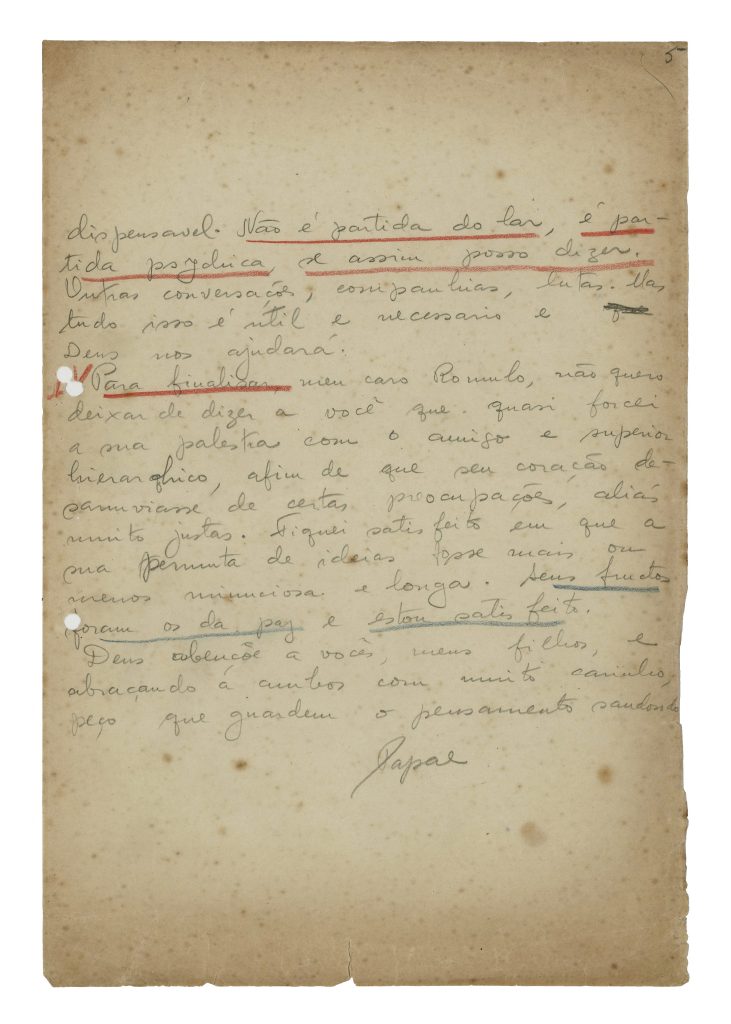 5
dispensavel. Não é partida do lar, é par-
tida psychica, se assim posso dizer.
Outras conversações, companhias, lutas. Mas
tudo isso é útil e necessario e
Deus nos ajudará.
IV Para finalisar, meu caro Romulo, não quero
deixar de dizer a você que quasi forcei
a sua palestra com o amigo e superior
hierarqhico, afim de que seu coração de-
sanuviasse de certas preocupações, aliás
muito justas. Fiquei satisfeito em que a
sua permuta de ideias fosse mais ou
menos minuciosa e longa. Seus fructos
foram os da paz e estou satisfeito.
Deus abençõe a vocês, meus filhos, e
abraçando á ambos com muito carinho,
peço que guardem o pensamento saudoso do
Papae